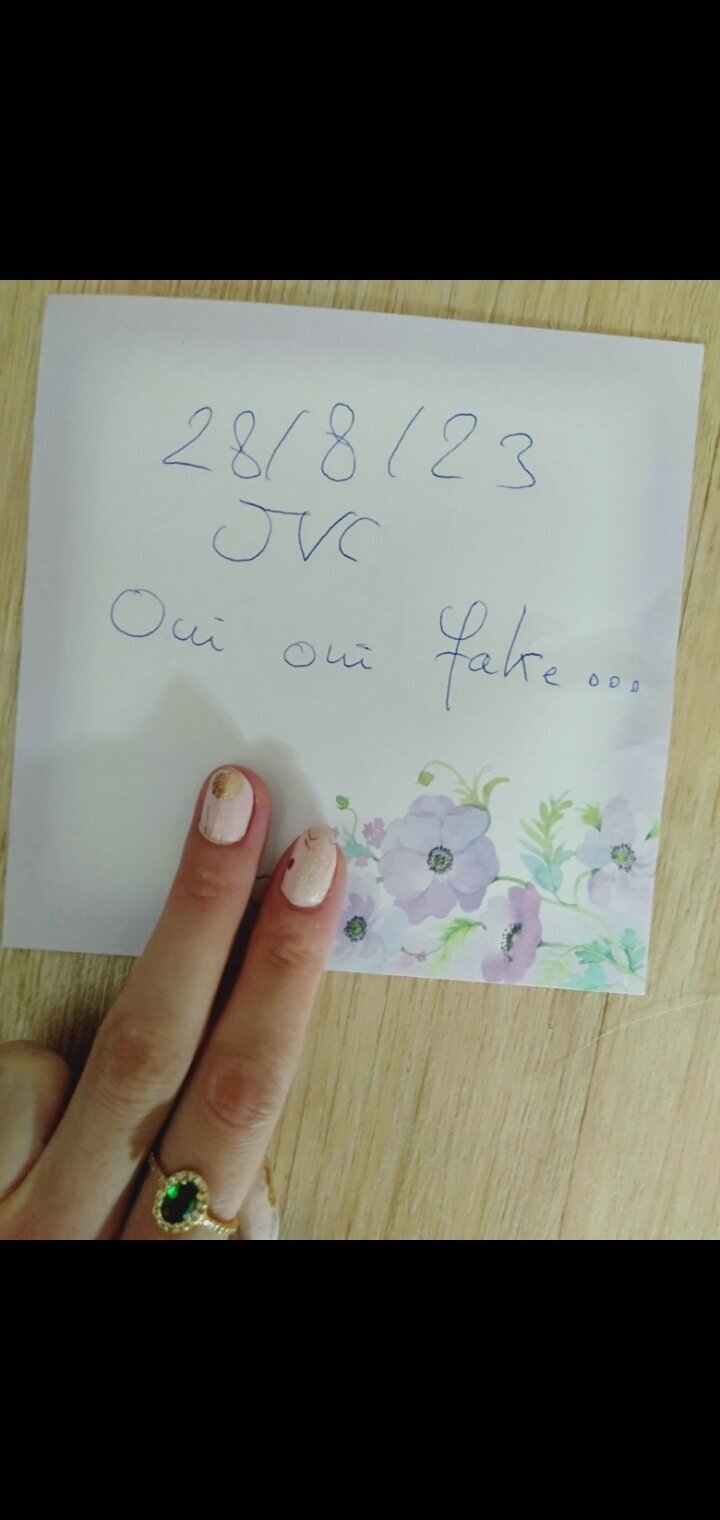 28/8/23
JVC
Oui oui fake...